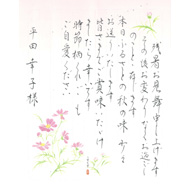 残暑お見舞い申し上げます
その後お変わりなくお過しの
ことと存じます
本日ふるさとの秋の味を
お送りいたします
皆さまでご賞味いただけ
ましたら幸いです
時節柄くれぐれも
ご自愛ください
平田幸子様